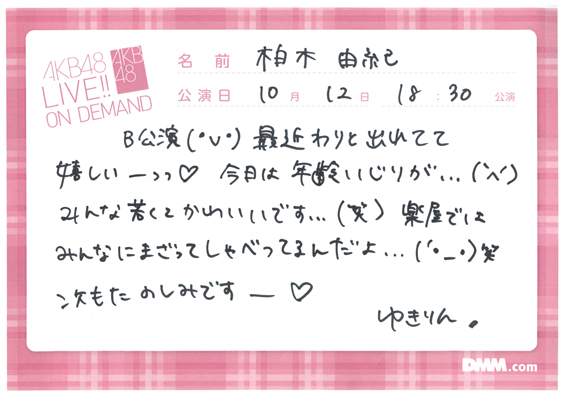 AKB48
LIVE!!
ON DEMAND
AKB
48
名前 柏木 由紀
公演日 10月 12日 18:30 公演
B公演(°∨°) 最近わりと出れてて
嬉しいーっっ♡ 今日は年齢いじりが…(´∧`)
みんな若くてかわいいです…(笑) 楽屋では
みんなにまざってしゃべってるんだよ…(´°_°)笑
次もたのしみですー♡
ゆきりん。
DMM.com